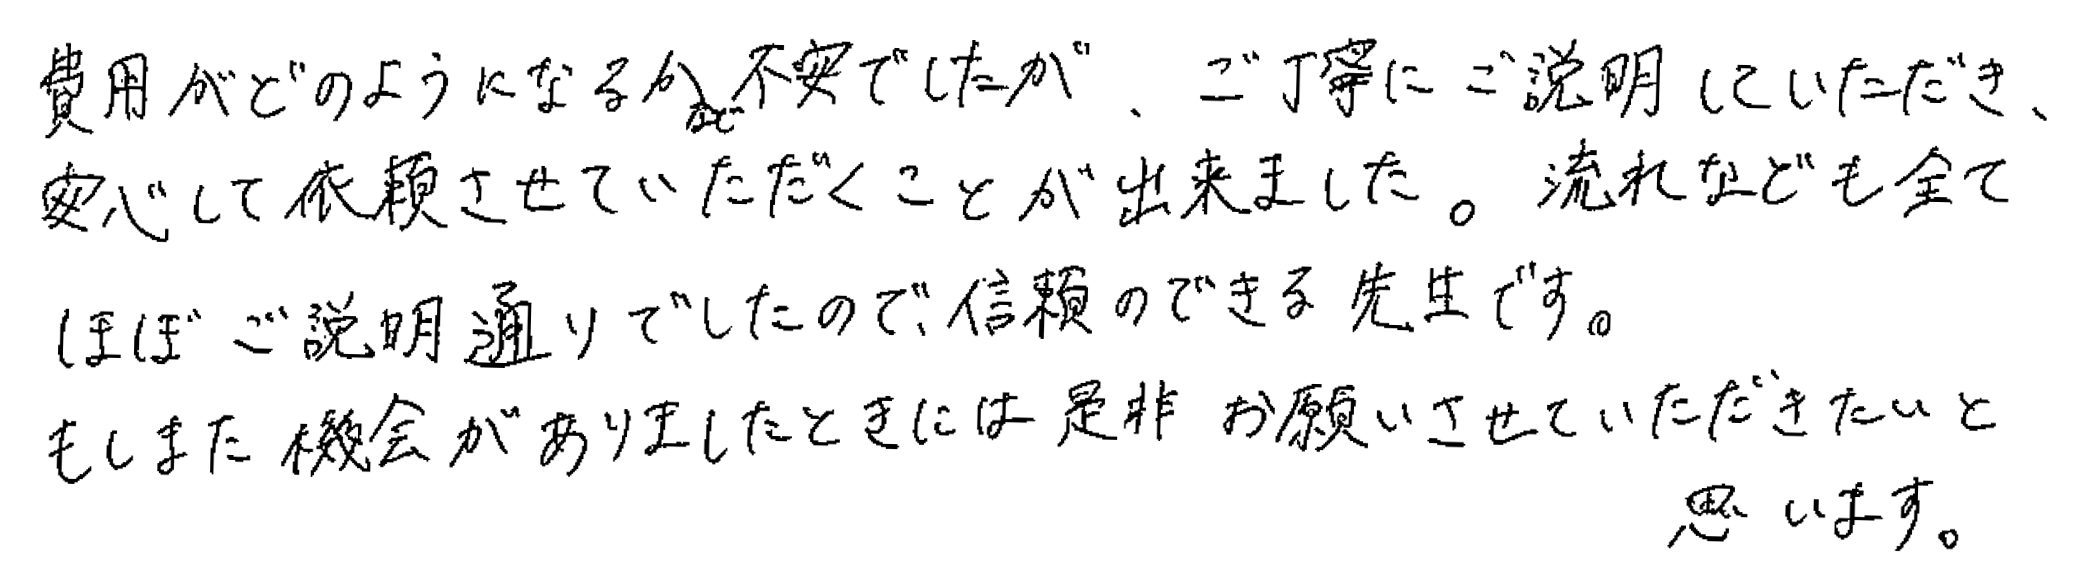 費用がどのようになるかなど不安でしたが、ご丁寧にご説明していただき、
安心して依頼させていただくことが出来ました。流れなども全て
ほぼご説明通りでしたので、信頼のできる先生です。
もしまた機会がありましたときには是非お願いさせていただきたいと
思います。